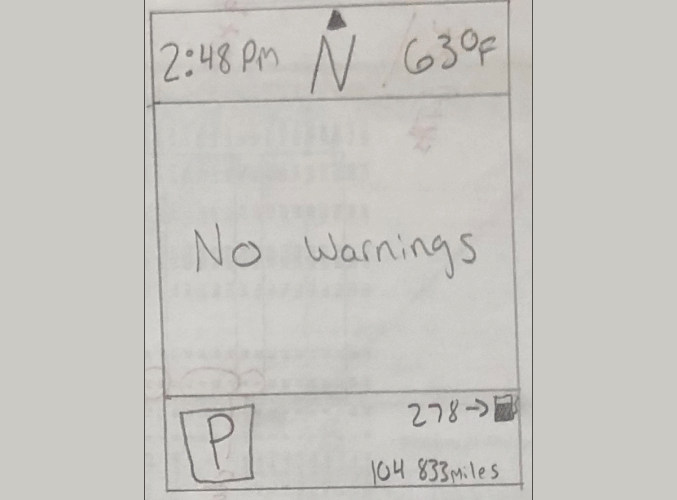 2:48 PM N 63°F
No Warnings
278→
P
104 833 miles